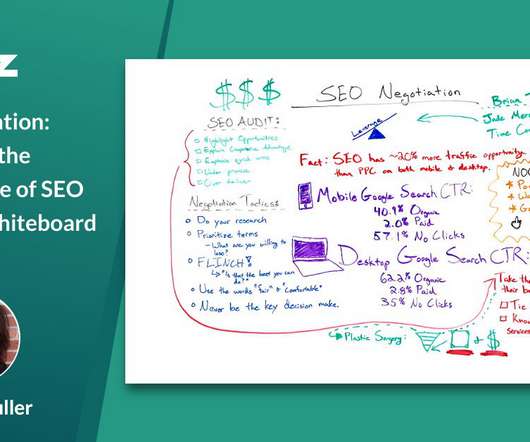 z
tion:
the
e of SEO
hiteboard
uller
$$$
SEO Negotiation
Leverage
Brian T
Jade Mer
Time Co
SEO AUDIT:
Highlight Opportunities
Explain Competitive Advantage
Explain quick wins
Under promise
Over deliver
Fact: SEO has ~20X more traffic opportunity
than PPC on both mobile & desktop.
NO
Po
W
G
Negotiation Tactics:
Do your research
Prioritize terms
- What are you willing to
lose?
FLINCH!
"Is that the best you can
do?"
Use the words "fair" & "comfortable"
Never be the key decision make.
Mobile Google Search CTR:
40.9% Organic
2.0% Paid
57.1% No Clicks
Desktop Google Search CTR:
62.2% Organic
2.8% Paid
35% No Clicks
Take the
their b
Tie
Kno
services
Plastic Surgery:
+ $